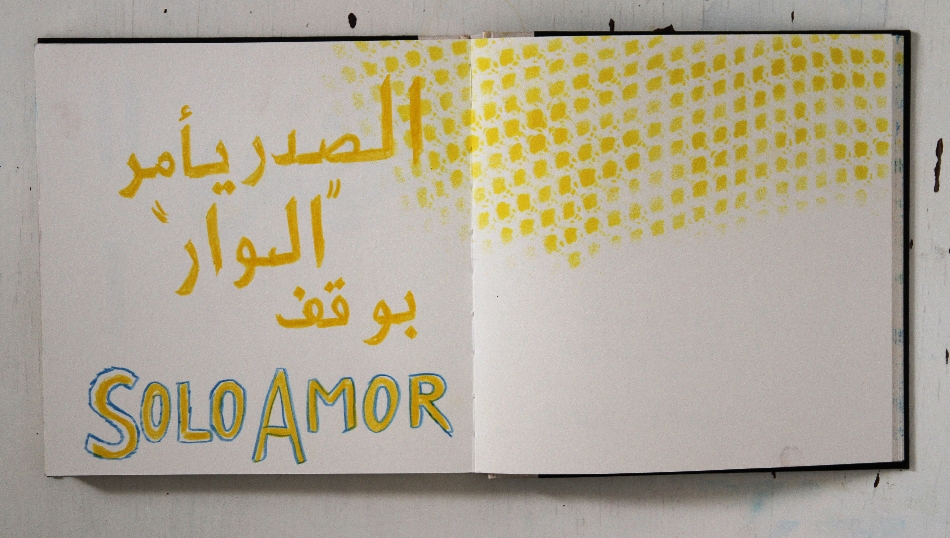 الصدر يأمر
"الوار"
بوقف
SOLO AMOR